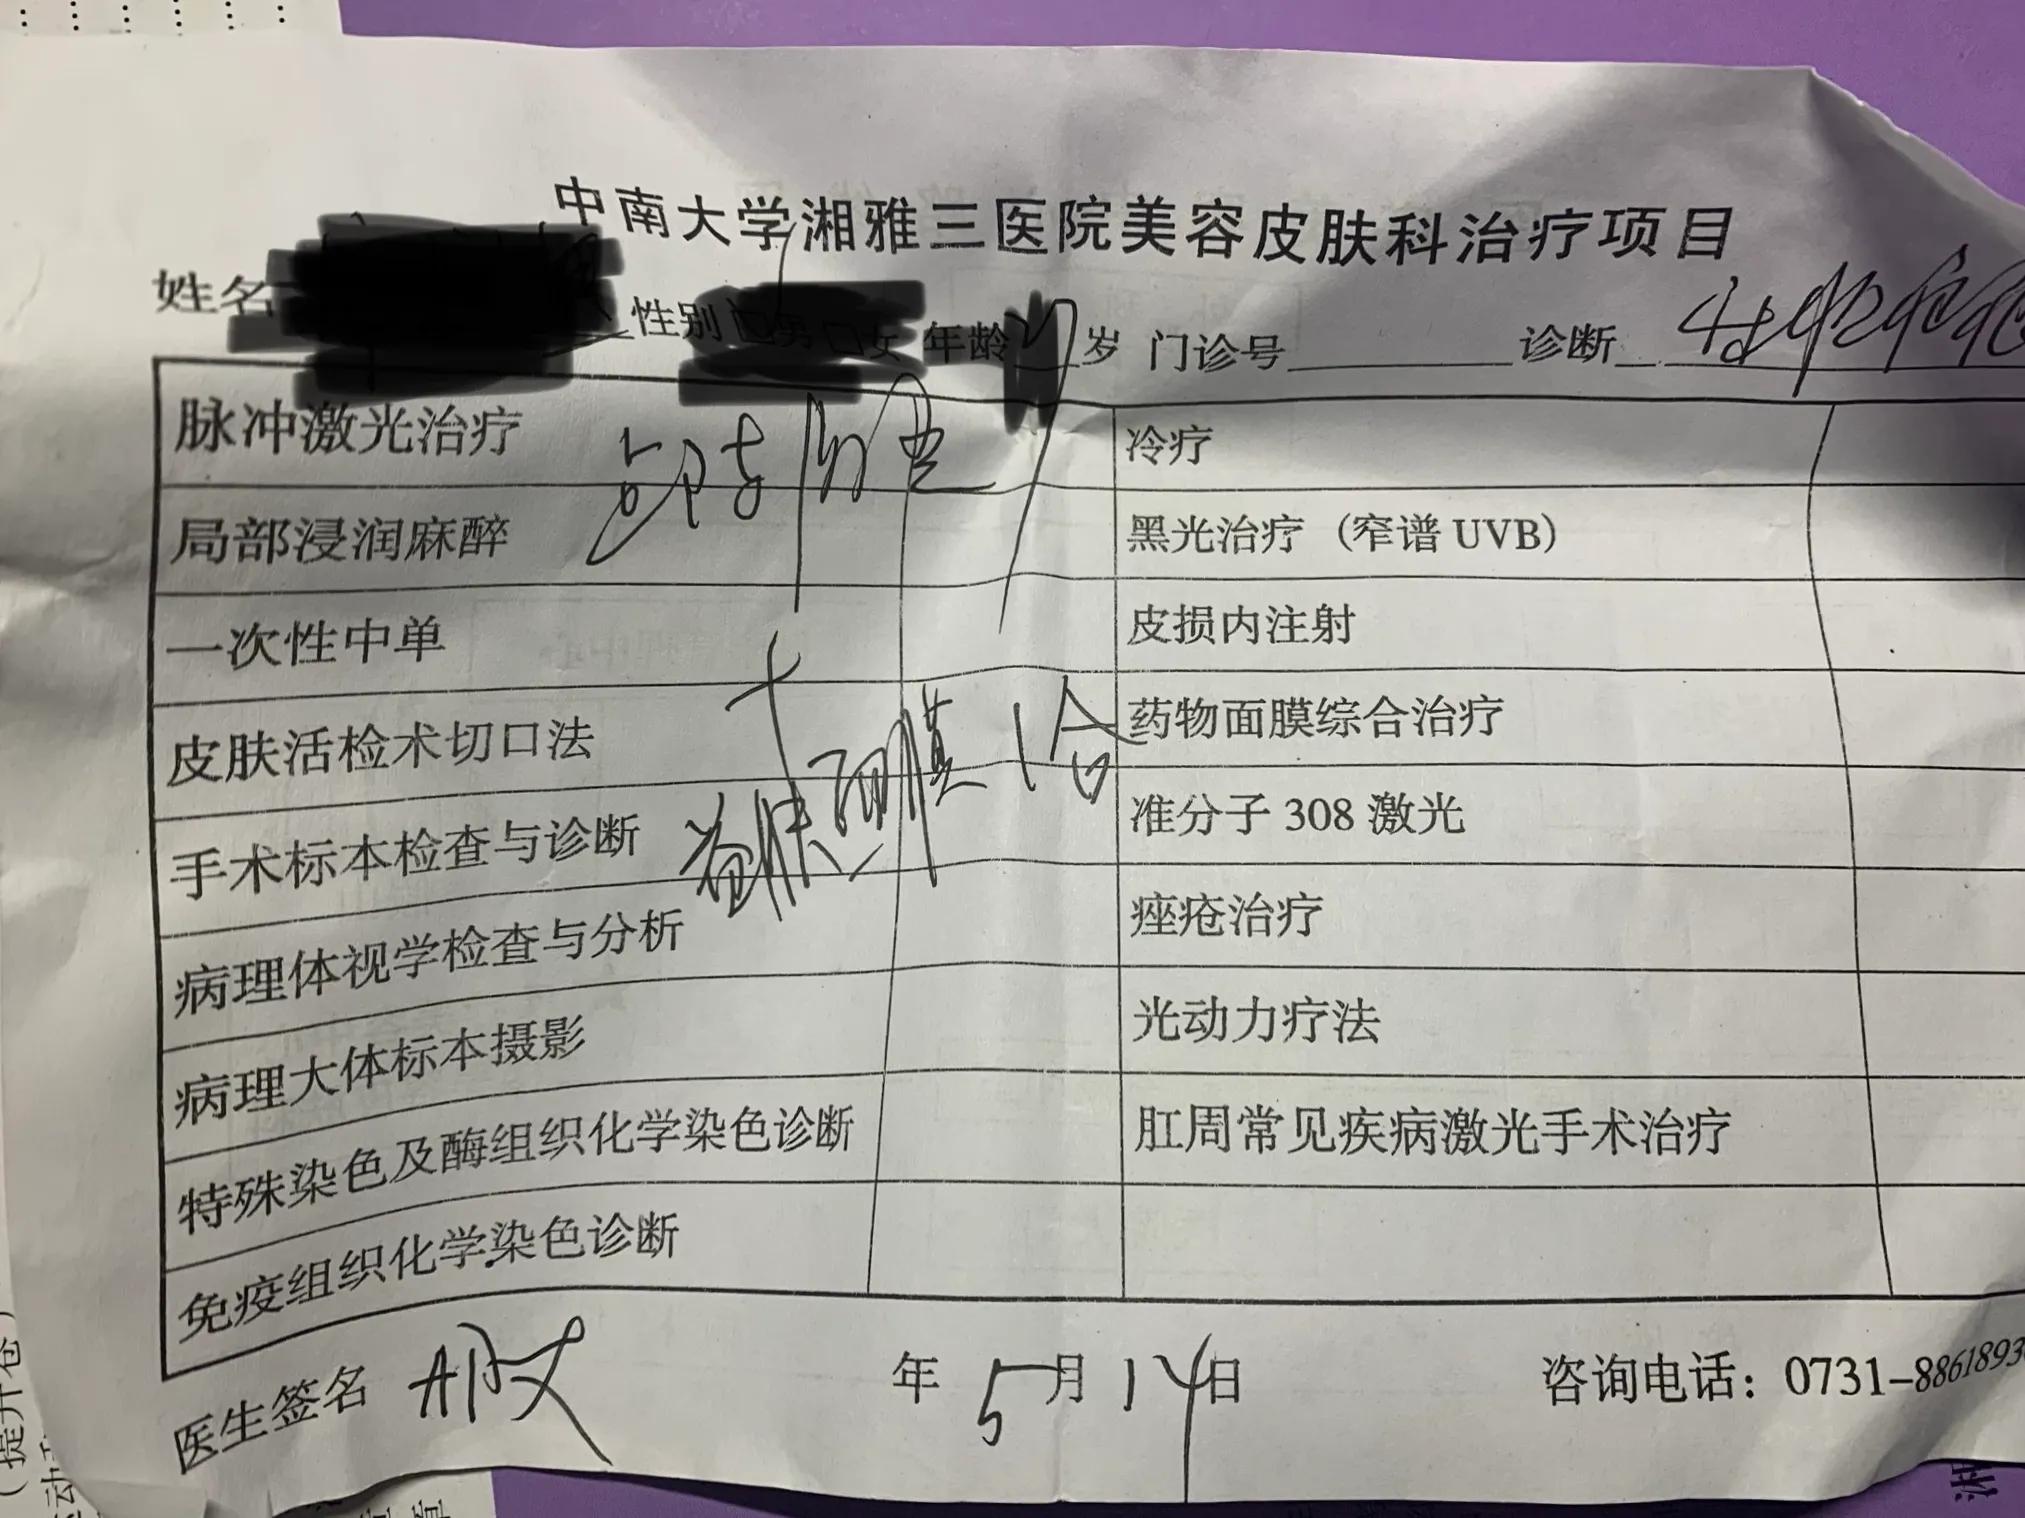 中南大学湘雅三医院美容皮肤科治疗项目
姓名 性别 男 女 年龄 岁 门诊号 诊断
脉冲激光治疗 冷疗
局部浸润麻醉 黑光治疗（窄谱 UVB）
一次性中单 皮损内注射
皮肤活检术切口法 药物面膜综合治疗
+
面膜 1合
手术标本检查与诊断 准分子 308 激光
病理体视学检查与分析 痤疮治疗
病理大体标本摄影 光动力疗法
特殊染色及酶组织化学染色诊断 肛周常见疾病激光手术治疗
免疫组织化学染色诊断
医生签名 年 5月14日 咨询电话：0731-8861893